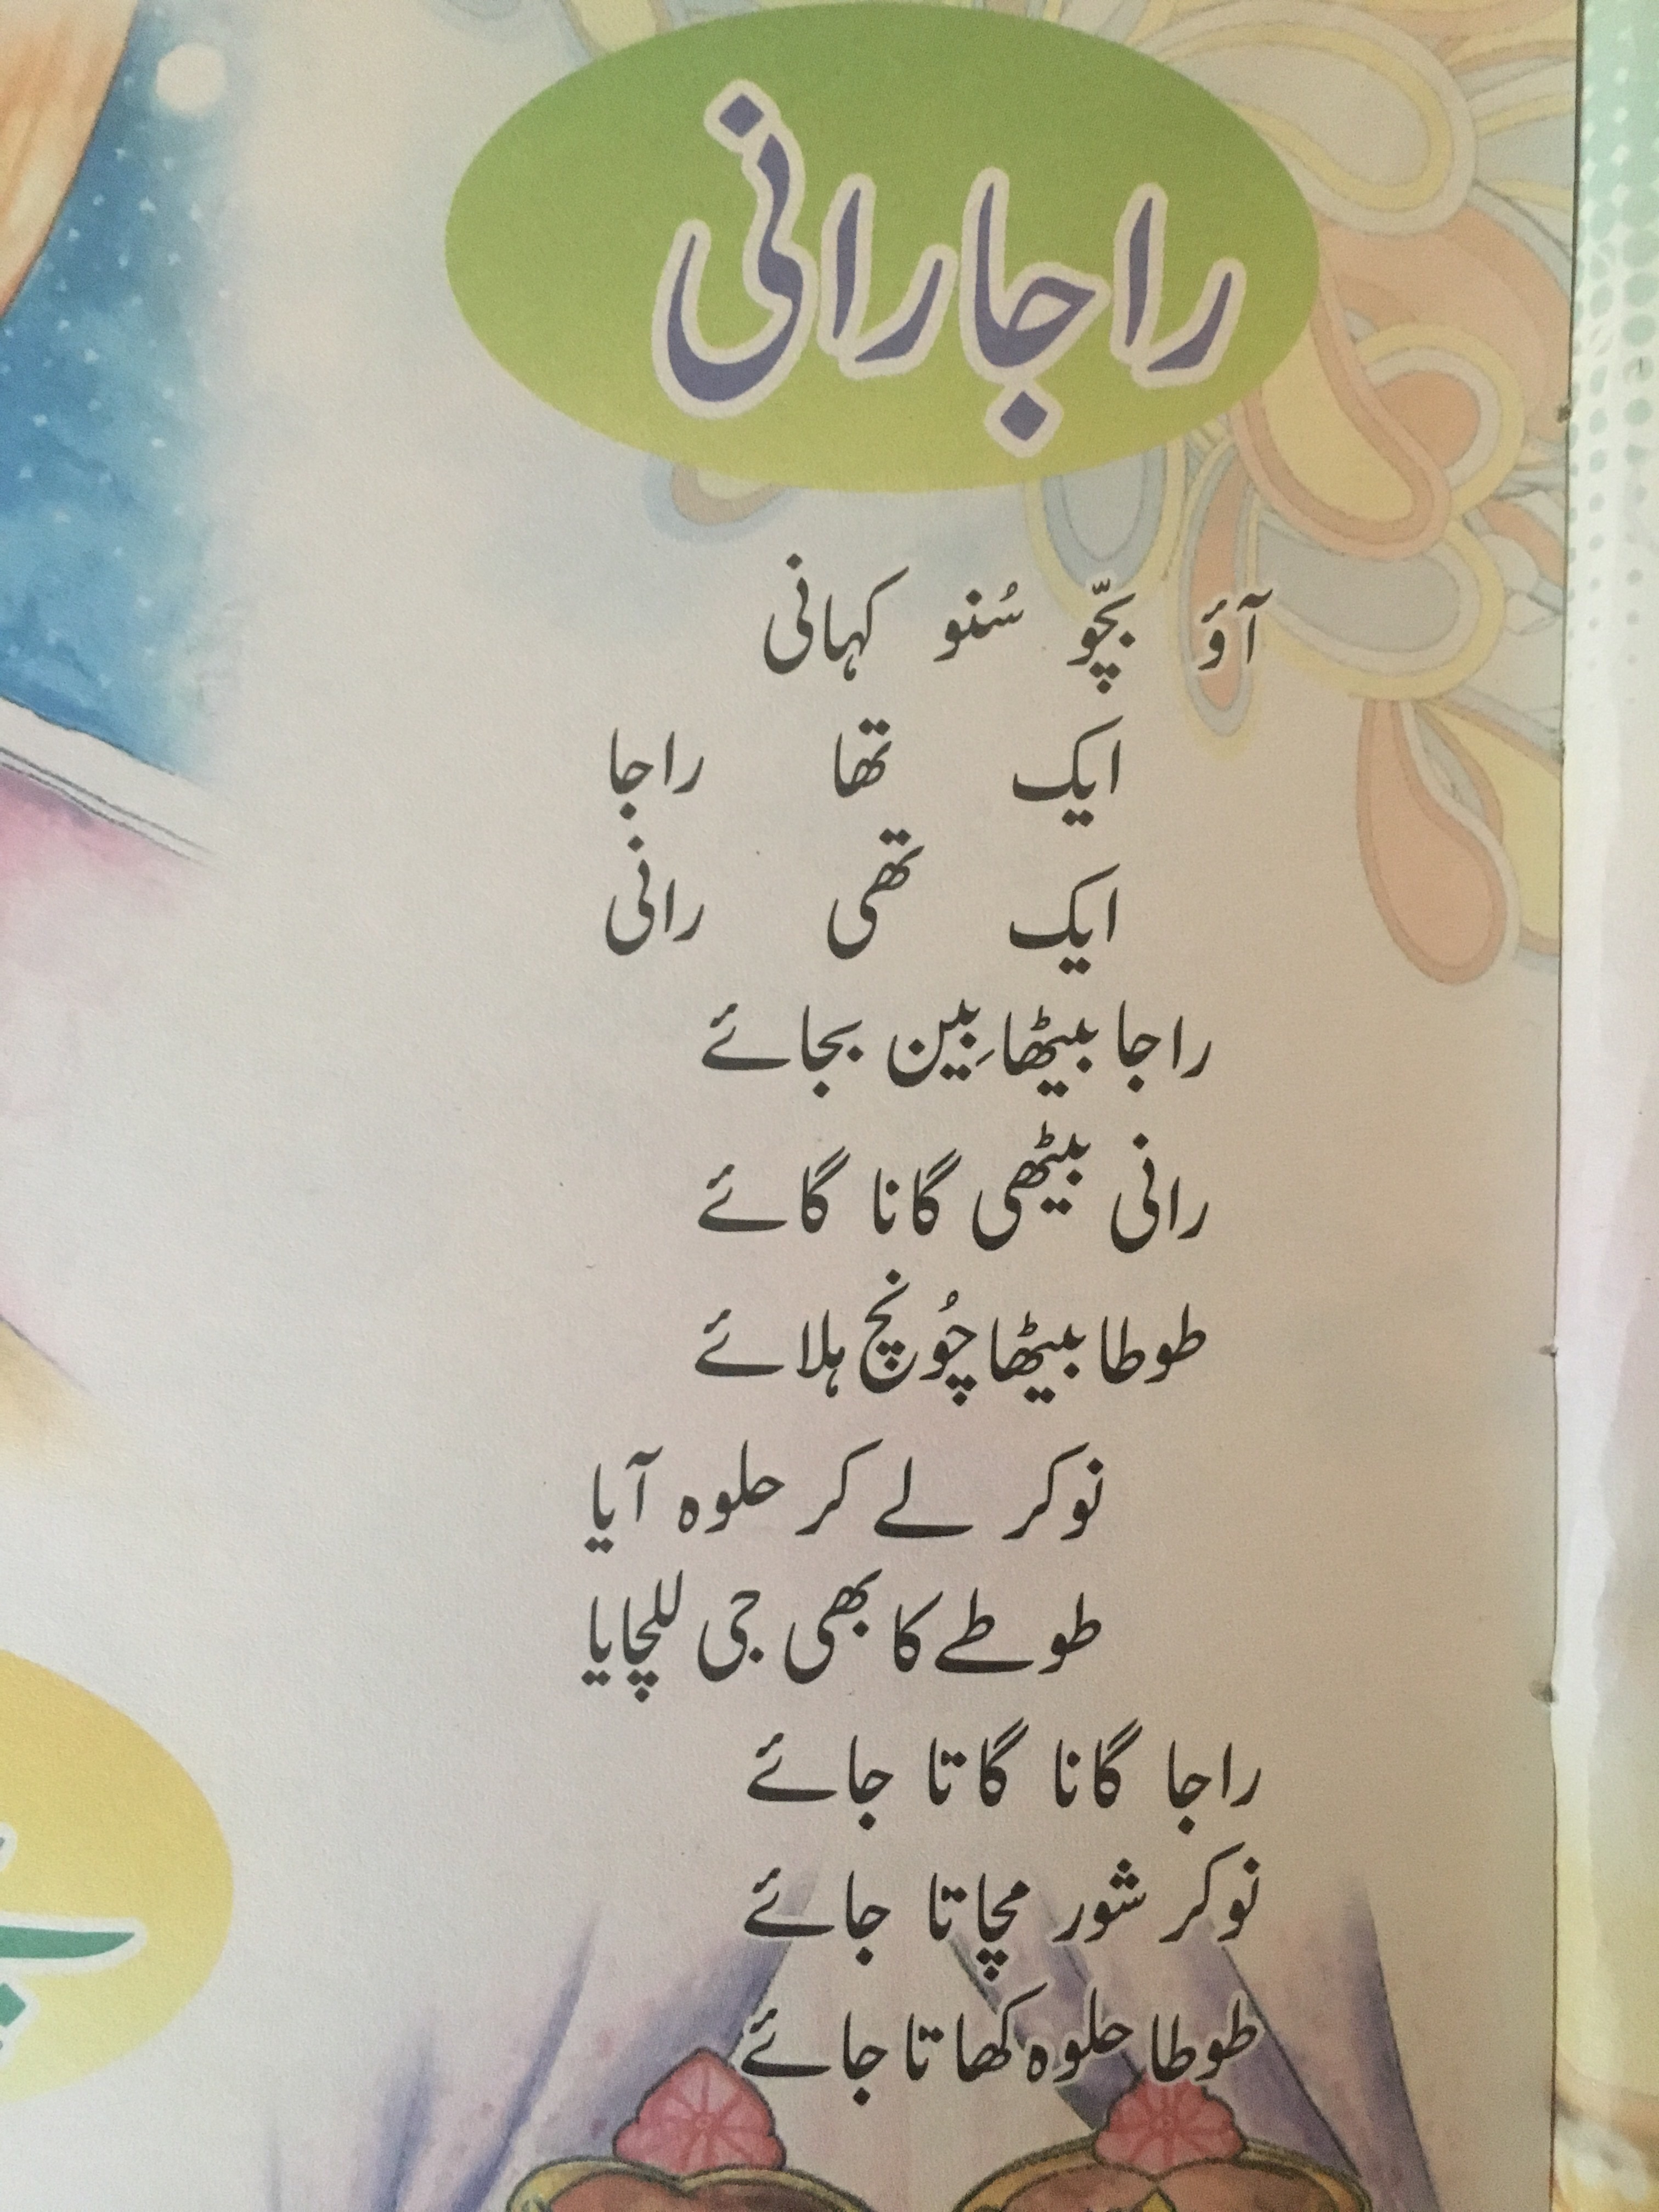 راجا رانی
آؤ بچّو سُنو کہانی
ایک تھا راجا
ایک تھی رانی
راجا بیٹھا بِین بجائے
رانی بیٹھی گانا گائے
طوطا بیٹھا چُونچ ہلائے
نوکر لے کر حلوہ آیا
طوطے کا بھی جی للچایا
راجا گانا گاتا جائے
نوکر شور مچاتا جائے
طوطا حلوہ کھاتا جائے